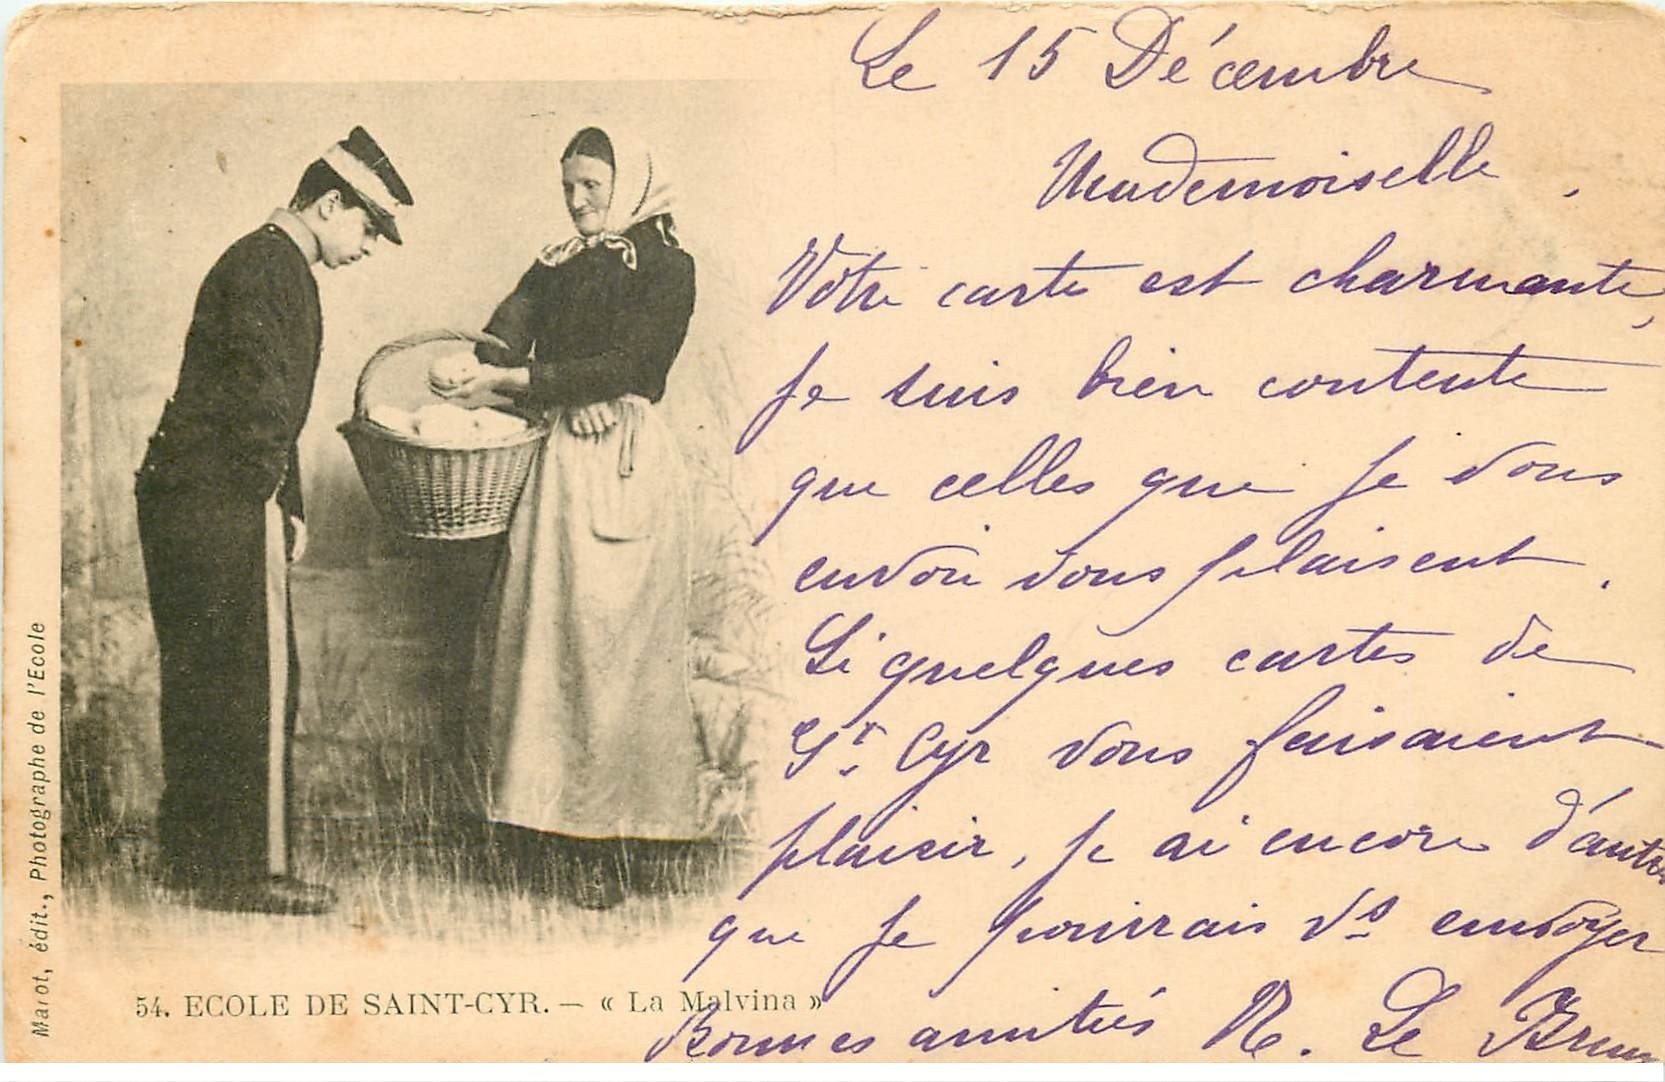 Le 15 Décembre
Mademoiselle,
Votre carte est charmante,
je suis bien contente
que celles que je vous
envoie vous plaisent.
Si quelques cartes de
St. Cyr vous faisaient
plaisir, je ai encore d'autres
que je pourrais vs envoyer
Bonnes amitiés N. Le Brun
54. ECOLE DE SAINT-CYR. — « La Malvina »
Marot, édit., Photographe de l'Ecole